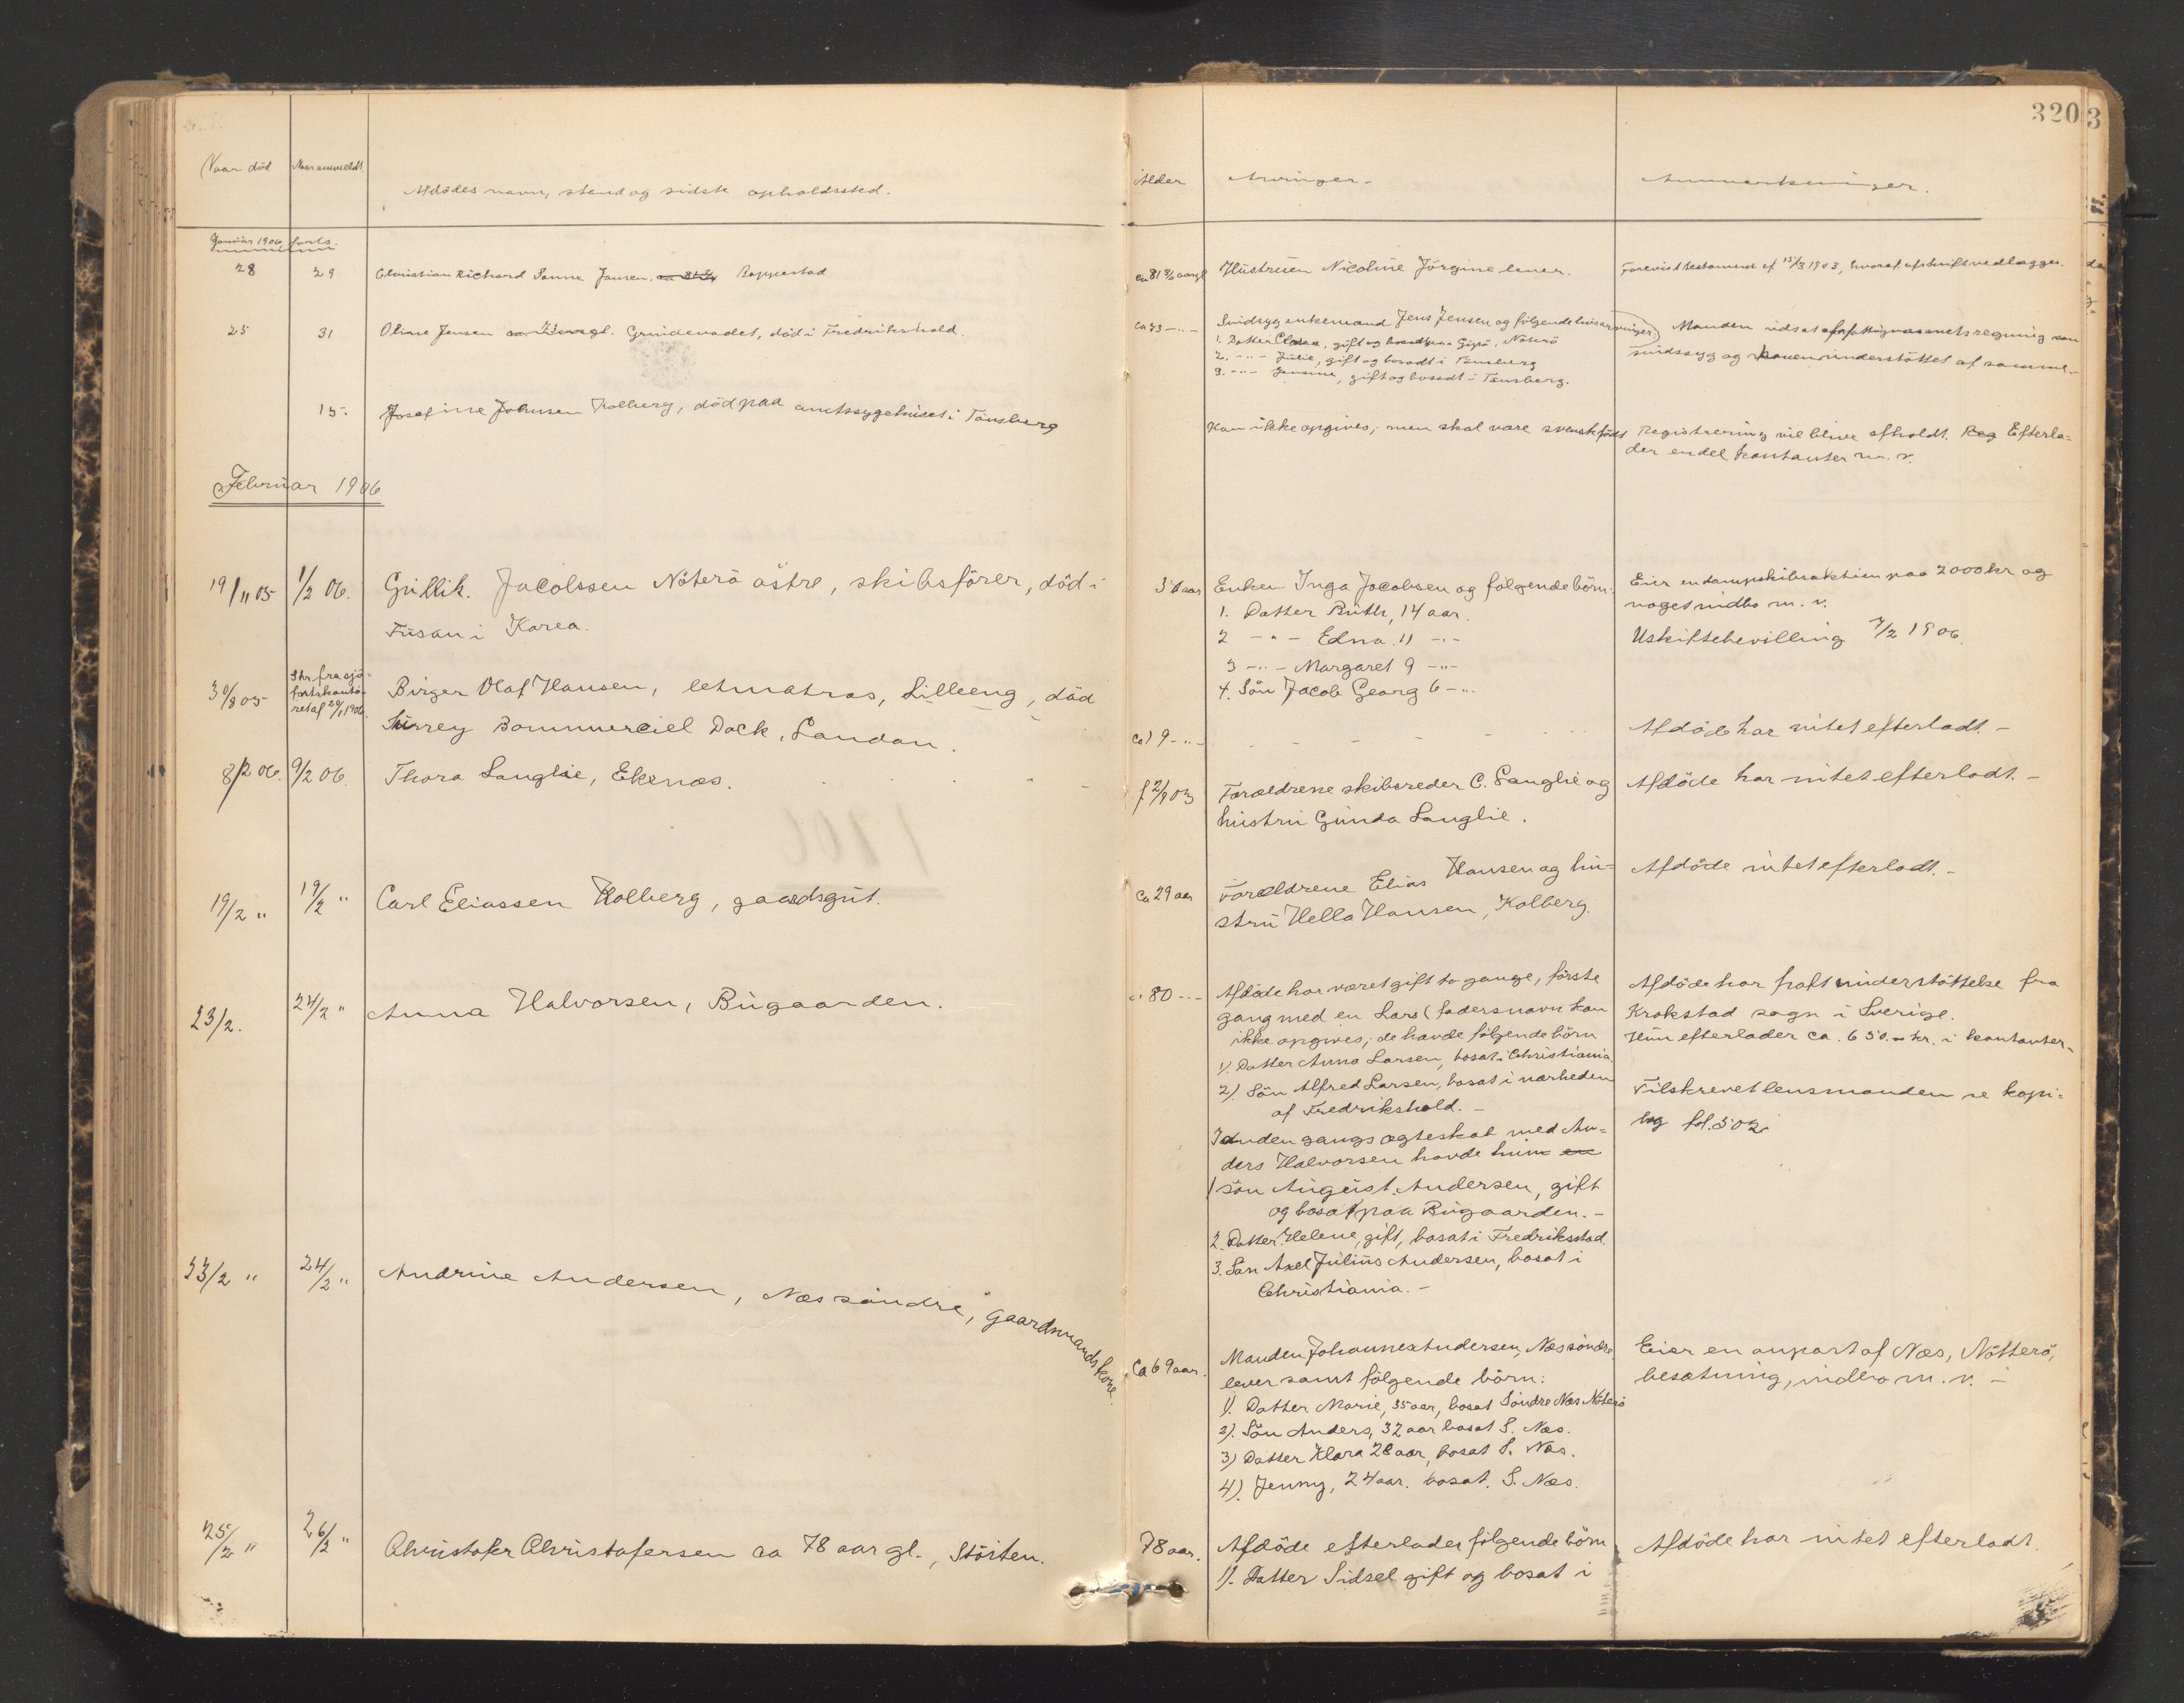 320
Naar död Naar anmeldt Afdödes navn, stand og sidste opholdssted. Alder Arvinger. Anmærkninger.
Januar 1906 forts.
28 29 Christian Richard Sanne Jansen, Roppestad
ca 81 ½ aargl Hustruen Nicoline Jörgine lever.
Forevist testament af 15/3 1903, hvoraf afskrift vedlægges.
25 31 Oline Jensen Grindevadet, död i Fredrikshald.
ca 73 -"- Sindsyg enkemand Jens Jensen og følgende livsarvinger
1. Datter Clara, gift og bosadt paa Gipö, Nöterö
2. -"- Julie, gift og bosadt i Tønsberg
3. -"- Jensine, gift og bosadt i Tønsberg.
Manden udsat af fattigvæsnets regning som
sindssyg og konen understöttet af samme.-
15. Josefine Johnsen Kolberg, död paa amtssygehuset i Tönsberg
Kan ikke opgives, men skal være svenskfödt
Registrering vil blive afholdt. Reg Efterla-
der endel kontanter m. v.
Februar 1906
19/11 05 1/2 06. Gullik Jacobssen Nöterö östre, skibsförer, död i
Fusan i Korea.
aar Enken Inga Jacobsen og følgende börn:
1. Datter Ruth, 14 aar.
2 -"- Edna 11 -"-
3 -"- Margaret 9 -"-
4. Sön Jacob Georg 6 -"-
Eier en dampskibsaktien paa 2000 kr og
noget indbo m. v.
Uskiftebevilling 7/2 1906.
30/8 05 Skr. fra sjö-
fartskonto-
ret af 29/1 1906. Birger Olaf Hansen, letmatros, Lilleeng, död
Surrey Commerciel Dock, London.
ca 19 -"- Afdöde har intet efterladt. -
8/2 06. 9/2 06. Thora Langlie, Ekenæs.
f 2/8 03 Forældrene skibsreder C. Langlie og
hustru Gunda Langlie.
Afdöde har intet efterladt. -
19/2 " 19/2 " Carl Eliassen Kolberg, gaardsgut.
Ca 29 aar Forældrene Elias Hansen og hu-
stru Hella Hansen, Kolberg.
Afdöde intet efterladt. -
23/2. 24/2 " Anna Halvorsen, Bugaarden.
" 80 -"- Afdöde har været gift to gange, förste
gang med en Lars (fadersnavn kan
ikke opgives; de havde følgende börn
1). Datter Anna Larsen, bosat i Christiania.
2). Sön Alfred Larsen, bosat i nærheden
af Fredrikshald. -
I anden gangs ægteskab med An-
ders Halvorsen havde hun en
1 sön August Andersen, gift
og bosat paa Bugaarden. -
2. Datter Helene, gift, bosat i Fredriksstad.
3. Sön Axel Julius Andersen, bosat i
Christiania. -
Afdöde har havt understöttelse fra
Krokstad sogn i Sverige.
Hun efterlader ca. 650.- kr. i kontanter.
Tilskrevet lensmanden se kopi-
bog fol. 502
23/2 " 24/2 " Andrine Andersen, Næs söndre, gaardmandskone.
Ca 69 aar. Manden Johannes Andersen, Næs söndre,
lever samt følgende börn:
1). Datter Marie, 35 aar, bosat Söndre Næs Nöterö
2). Sön Anders, 32 aar bosat S. Næs.
3) Datter Klara 28 aar, bosat S. Næs.
4). Jenny, 24 aar. bosat. S. Næs.
Eier en anpart af Næs, Nötterö,
besætning, indbo m. v. -
25/2 " 26/2 " Christofer Christofersen ca 78 aar gl., Störten.
78 aar. Afdöde efterlader følgende börn
1). Datter Sidsel gift og bosat i
Afdöde har intet efterladt.